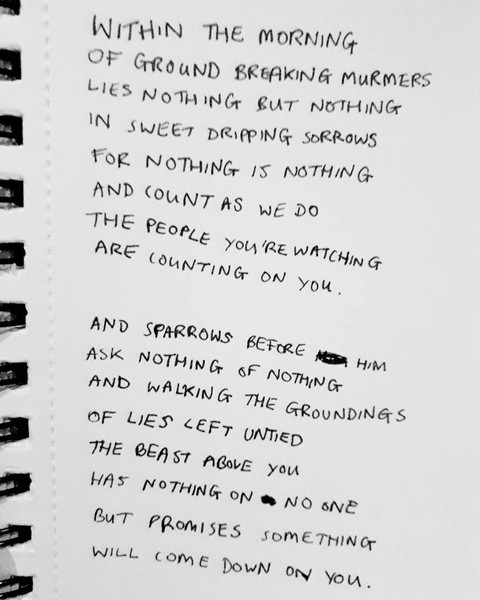 WITHIN THE MORNING
OF GROUND BREAKING MURMERS
LIES NOTHING BUT NOTHING
IN SWEET DRIPPING SORROWS
FOR NOTHING IS NOTHING
AND COUNT AS WE DO
THE PEOPLE YOU'RE WATCHING
ARE COUNTING ON YOU.
AND SPARROWS BEFORE HIM
ASK NOTHING OF NOTHING
AND WALKING THE GROUNDINGS
OF LIES LEFT UNTIED
THE BEAST ABOVE YOU
HAS NOTHING ON NO ONE
BUT PROMISES SOMETHING
WILL COME DOWN ON YOU.